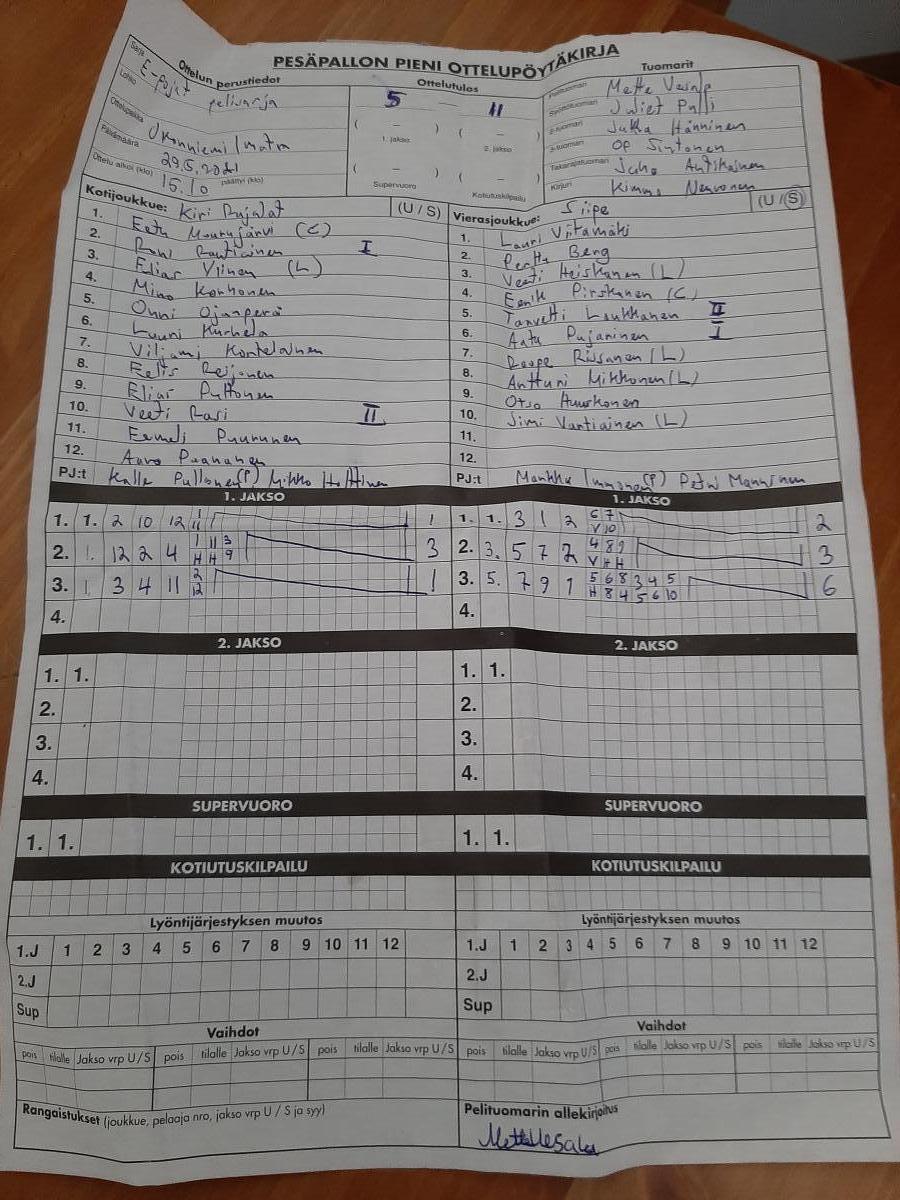 PESÄPALLON PIENI OTTELUPÖYTÄKIRJA
Ottelun perustiedot
Ottelutulos
Tuomarit
Sarja E-pojat
Lohko pelisarja
Ottelupaikka Ukonniemi/Imatra
Päivämäärä 29.5.2021
Ottelu alkoi (klo) 15.10 päättyi (klo)
5 — 11
( — ) ( — )
1. jakso 2. jakso
( — ) ( — )
Supervuoro Kotiutuskilpailu
Pelituomari Mette
Syöttötuomari Juliet Pulli
2-tuomari Jukka Hänninen
3-tuomari OP Sintonen
Takarajatuomari Juho Antikainen
Kirjuri Kimmo Nevonen
Kotijoukkue: Kiri Pujalat (U / S)
1. Eetu Mourujärvi (C)
2. Roni Rautiainen I
3. Elias Viinen (L)
4. Mino Korhonen
5. Onni Ojanperä
6. Luuni Kurhela
7. Viljami Kontelainen
8. Eelis Reijonen
9. Elias Pultonen
10. Veeti Rasi II
11. Eemeli Puurunen
12. Aaro Paananen
PJ:t Kalle Pullonen (P) Mikko Holttinen
Vierasjoukkue: Siipe (U / S)
1. Lauri Viitamäki
2. Perttu Berg
3. Veeti Heiskanen (L)
4. Eenik Pirskanen (C)
5. Tanvetti Laukkanen II
6. Aatu Pujaninen I
7. Roope Rissanen (L)
8. Anttuni Mikkonen (L)
9. Otso Huuskonen
10. Simi Vartiainen (L)
11.
12.
PJ:t Markku Immonen (P) Petri Manninen
1. JAKSO
1. 1. 2 10 12 1 1
11
2. 1. 12 2 4 1 11 3 3
H H 9
3. 1 3 4 11 2 1
12
4.
1. JAKSO
1. 1. 3 1 2 6 7 2
V 10
2. 3. 5 7 2 4 8 9 3
V H H
3. 5. 7 9 1 5 6 8 3 4 5 6
H 8 4 5 6 10
4.
2. JAKSO
1. 1.
2.
3.
4.
2. JAKSO
1. 1.
2.
3.
4.
SUPERVUORO
1. 1.
SUPERVUORO
1. 1.
KOTIUTUSKILPAILU
KOTIUTUSKILPAILU
Lyöntijärjestyksen muutos
1.J 1 2 3 4 5 6 7 8 9 10 11 12
2.J
Sup
Lyöntijärjestyksen muutos
1.J 1 2 3 4 5 6 7 8 9 10 11 12
2.J
Sup
Vaihdot
pois tilalle Jakso vrp U / S pois tilalle Jakso vrp U / S pois tilalle Jakso vrp U / S
Vaihdot
pois tilalle Jakso vrp U / S pois tilalle Jakso vrp U / S pois tilalle Jakso vrp U / S
Rangaistukset (joukkue, pelaaja nro, jakso vrp U / S ja syy)
Pelituomarin allekirjoitus